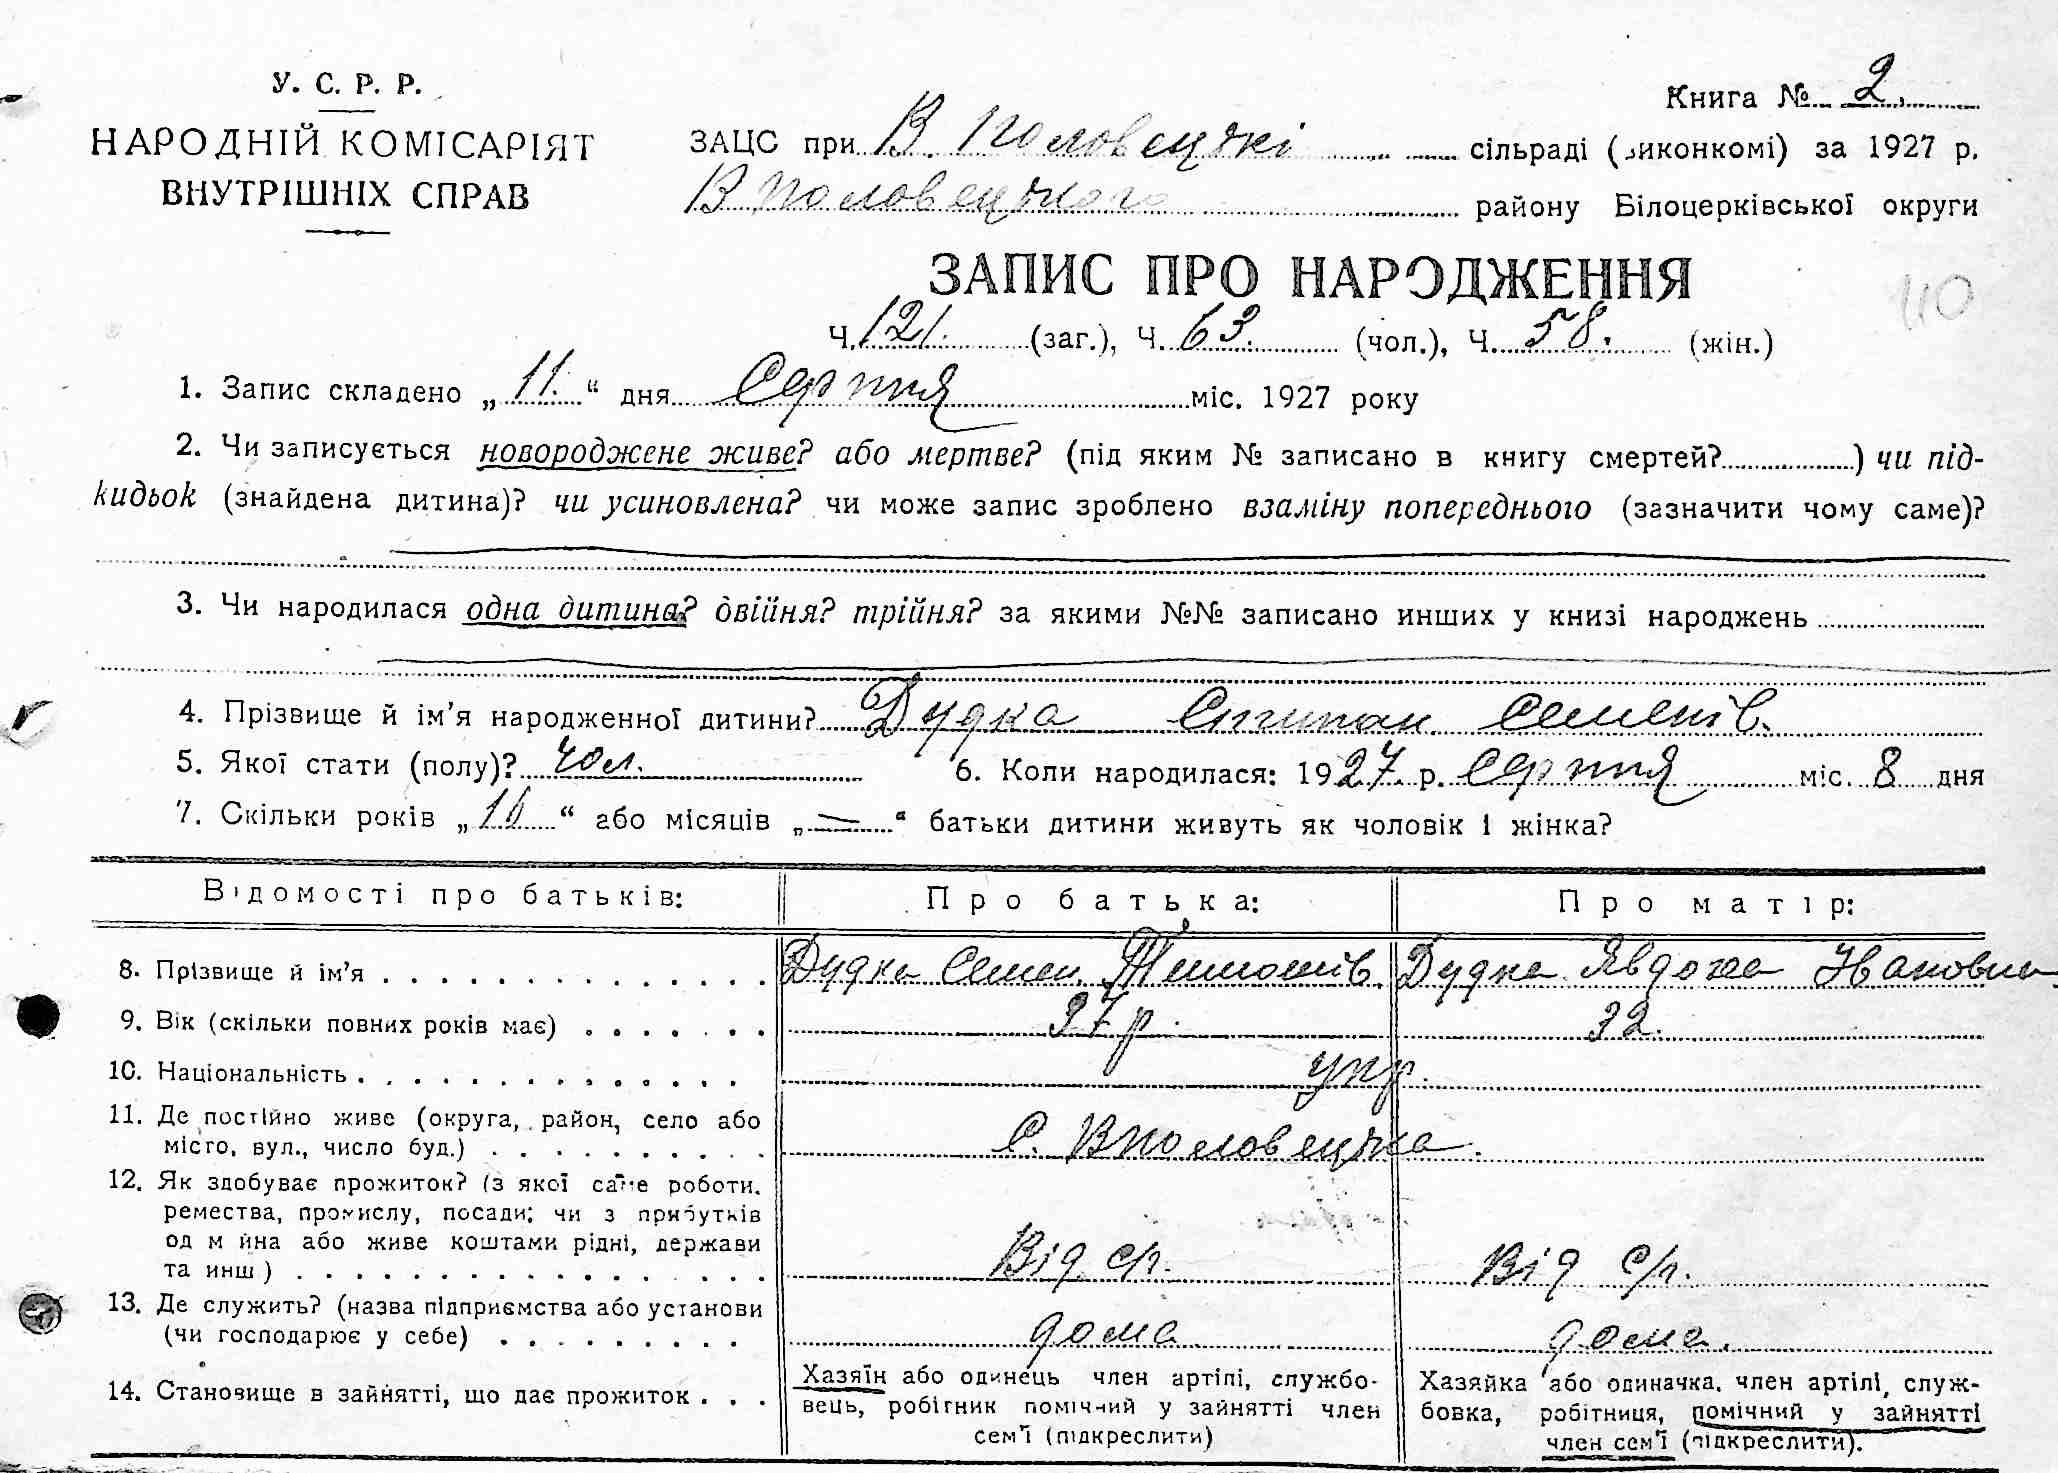 У. С. Р. Р.
НАРОДНІЙ КОМІСАРІЯТ
ВНУТРІШНІХ СПРАВ
Книга № 2.
ЗАЦС при В. Половецькі сільраді (виконкомі) за 1927 р.
В Половецького району Білоцерківської округи
ЗАПИС ПРО НАРОДЖЕННЯ
110
Ч. 121. (заг.), Ч. 63. (чол.), Ч. 58. (жін.)
1. Запис складено „ 11. “ дня Серпня міс. 1927 року
2. Чи записується новороджене живе? або мертве? (під яким № записано в книгу смертей?) чи під-
кидьок (знайдена дитина)? чи усиновлена? чи може запис зроблено взаміну попереднього (зазначити чому саме)?
3. Чи народилася одна дитина? двійня? трійня? за якими №№ записано инших у книзі народжень
4. Прізвище й ім’я народженної дитини? Дудка Степан Семенів.
5. Якої стати (полу)? чол. 6. Коли народилася: 1927 р. Серпня міс. 8 дня
7. Скільки років „ “ або місяців „ — “ батьки дитини живуть як чоловік і жінка?
Відомості про батьків: Про батька: Про матір:
8. Прізвище й ім’я Дудка Семен Тимошів. Дудка Явдоха Івановна
9. Вік (скільки повних років має) 37 р. 32.
10. Національність укр.
11. Де постійно живе (округа, район, село або
місто, вул., число буд.) С. В Половецька.
12. Як здобуває прожиток? (з якої саме роботи,
ремества, промислу, посади; чи з прибутків
од майна або живе коштами рідні, держави
та инш) Від с/г. Від с/г.
13. Де служить? (назва підприємства або установи
(чи господарює у себе) дома дома.
14. Становище в зайнятті, що дає прожиток
Хазяїн або одинець член артілі, службо-
вець, робітник помічний у зайнятті член
сем’ї (підкреслити)
Хазяйка або одиначка, член артілі, служ-
бовка, робітниця, помічний у зайнятті
член сем’ї (підкреслити).